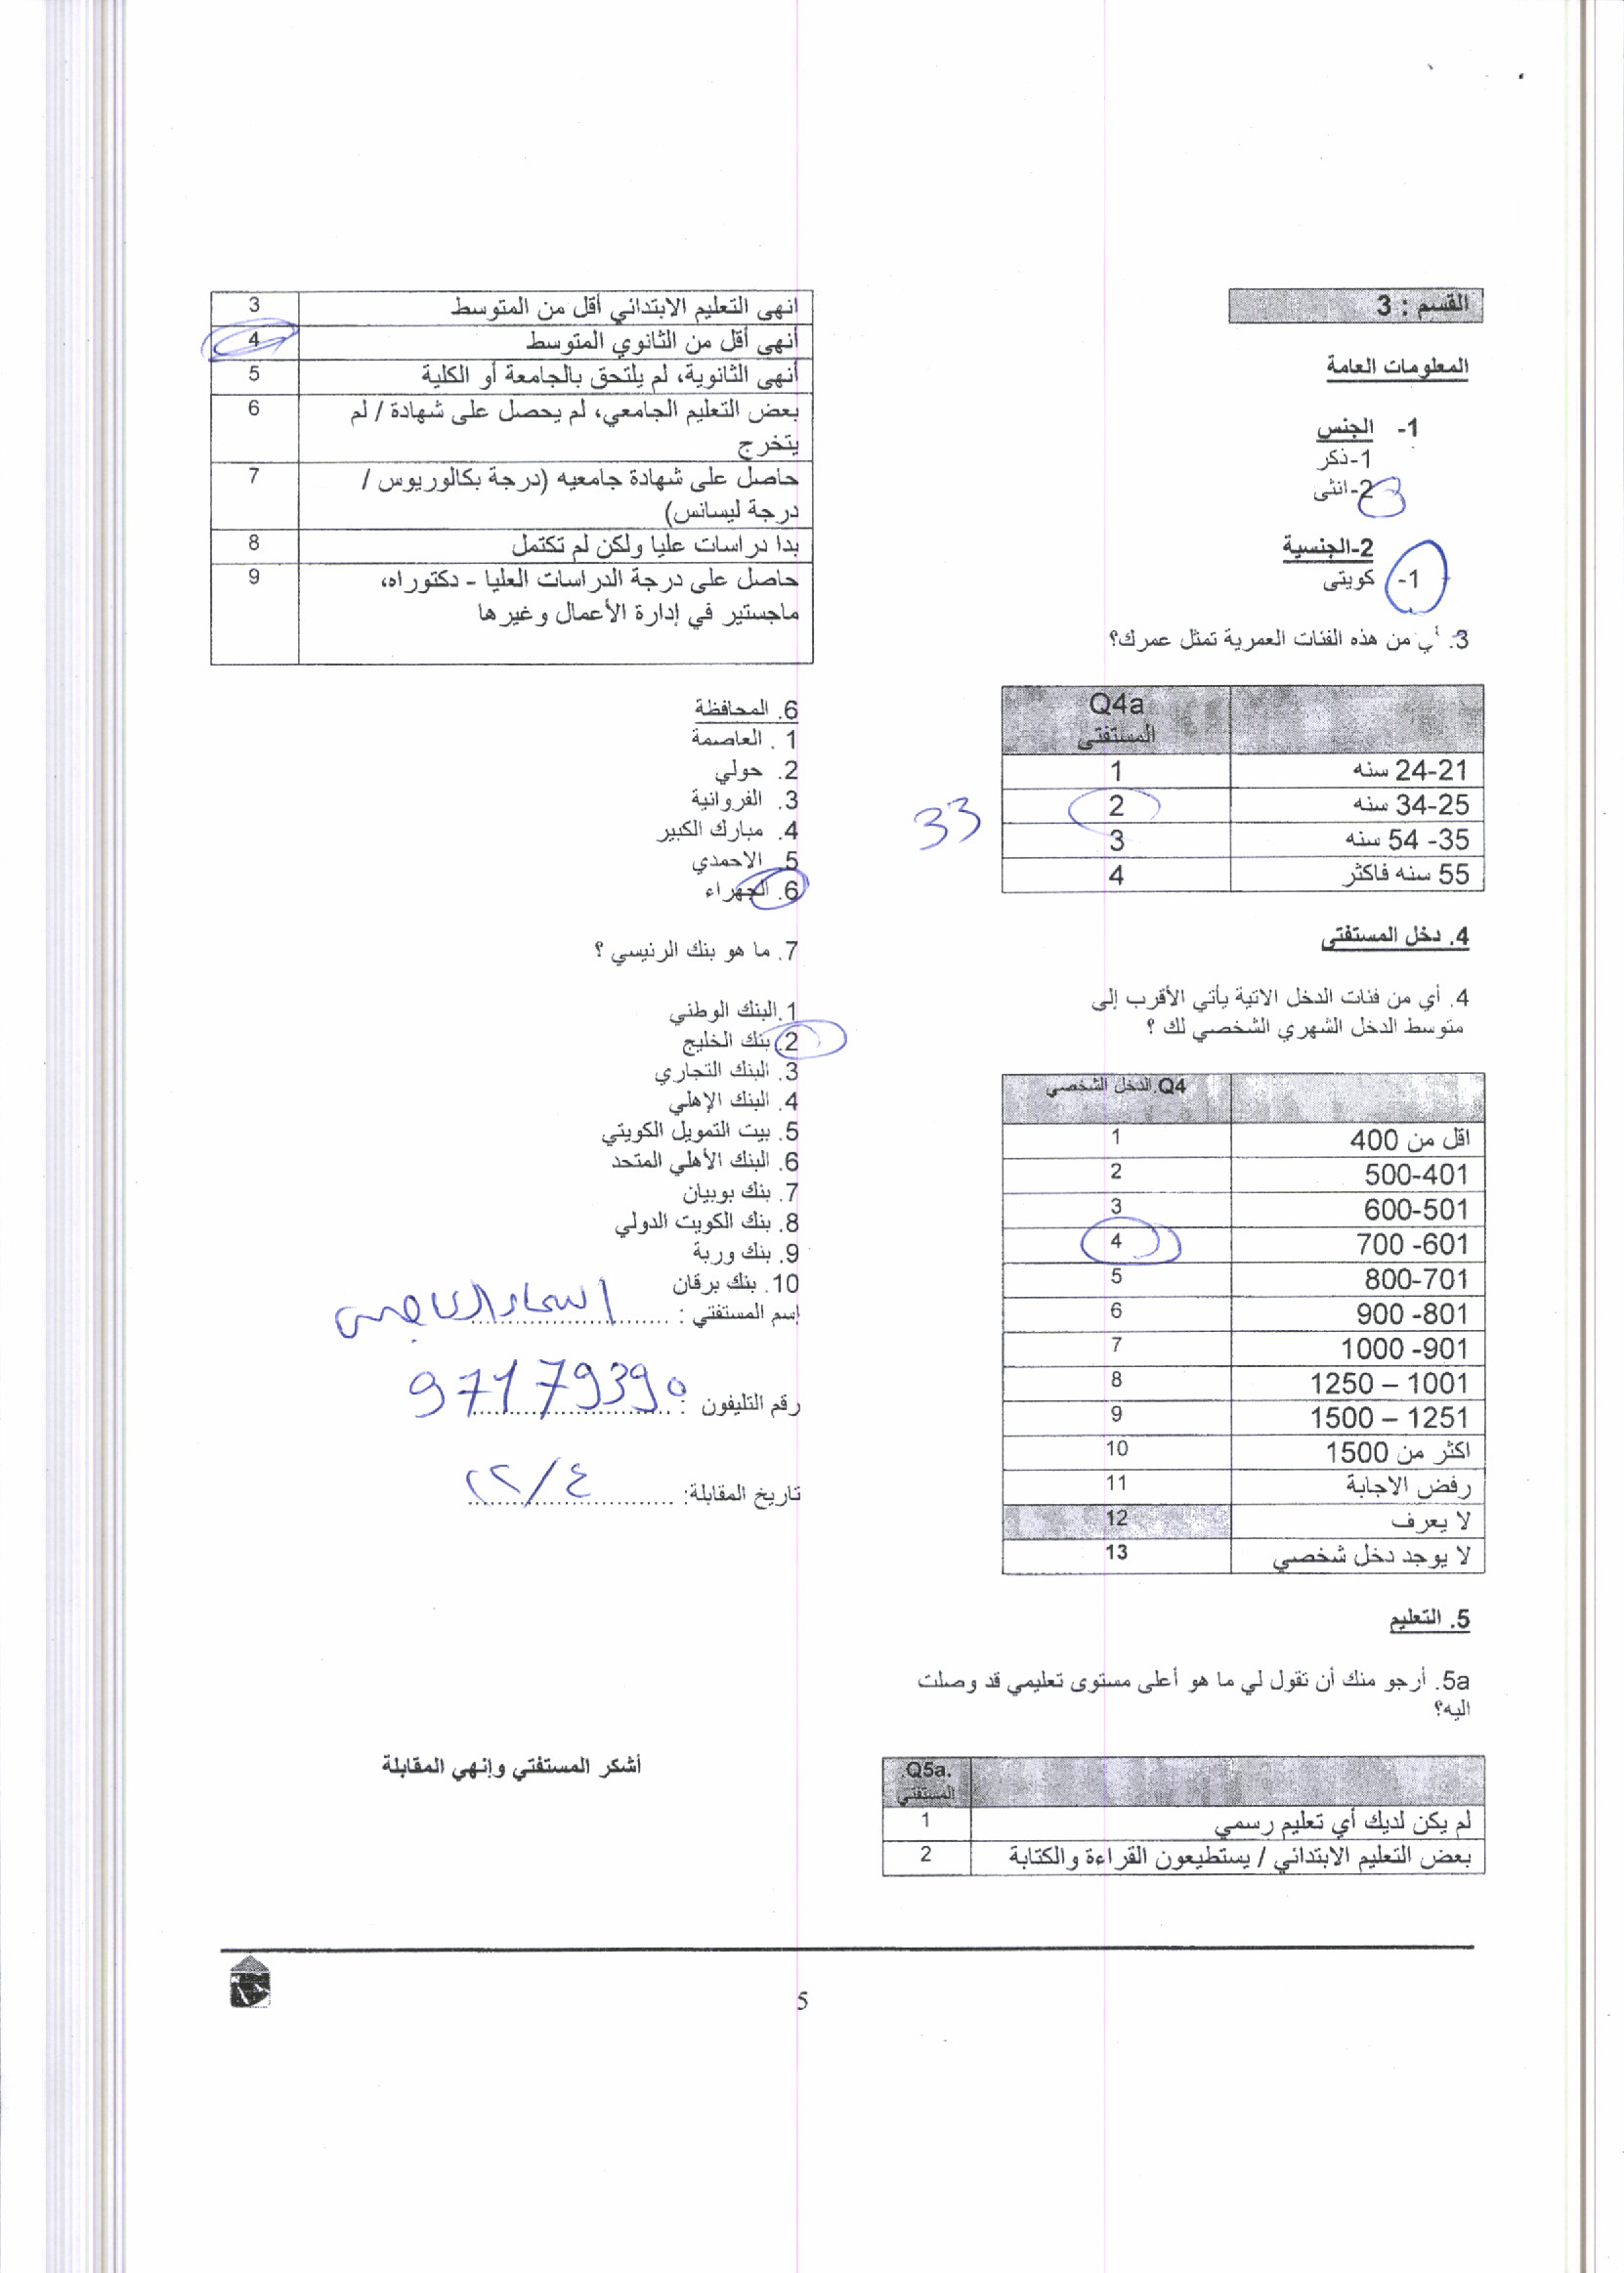 القسم : 3
المعلومات العامة
1- الجنس
1-ذكر
2-انثى
2-الجنسية
1- كويتى
3. أي من هذه الفئات العمرية تمثل عمرك؟
Q4a
المستفتى
24-21 سنه 1
34-25 سنه 2
33
35- 54 سنه 3
55 سنه فاكثر 4
4. دخل المستفتى
4. أي من فئات الدخل الاتية يأتي الأقرب إلى
متوسط الدخل الشهري الشخصي لك ؟
Q4.الدخل الشخصي
اقل من 400 1
500-401 2
600-501 3
700 -601 4
800-701 5
900 -801 6
1000 -901 7
1250 – 1001 8
1500 – 1251 9
اكثر من 1500 10
رفض الاجابة 11
لا يعرف 12
لا يوجد دخل شخصي 13
5. التعليم
5a. أرجو منك أن تقول لي ما هو أعلى مستوى تعليمي قد وصلت
اليه؟
Q5a.
المستفتي
لم يكن لديك أي تعليم رسمي 1
بعض التعليم الابتدائي / يستطيعون القراءة والكتابة 2
انهى التعليم الابتدائي أقل من المتوسط 3
أنهى أقل من الثانوي المتوسط 4
أنهى الثانوية، لم يلتحق بالجامعة أو الكلية 5
بعض التعليم الجامعي، لم يحصل على شهادة / لم 6
يتخرج
حاصل على شهادة جامعيه (درجة بكالوريوس / 7
درجة ليسانس)
بدا دراسات عليا ولكن لم تكتمل 8
حاصل على درجة الدراسات العليا - دكتوراه، 9
ماجستير في إدارة الأعمال وغيرها
6. المحافظة
1 . العاصمة
2. حولي
3. الفروانية
4. مبارك الكبير
5. الاحمدي
6. الجهراء
7. ما هو بنك الرئيسي ؟
1.البنك الوطني
2. بنك الخليج
3. البنك التجاري
4. البنك الإهلي
5. بيت التمويل الكويتي
6. البنك الأهلي المتحد
7. بنك بوبيان
8. بنك الكويت الدولي
9. بنك وربة
10. بنك برقان
إسم المستفتي :
رقم التليفون : 97179390
تاريخ المقابلة: ٢٢/٤
أشكر المستفتي وإنهي المقابلة
5